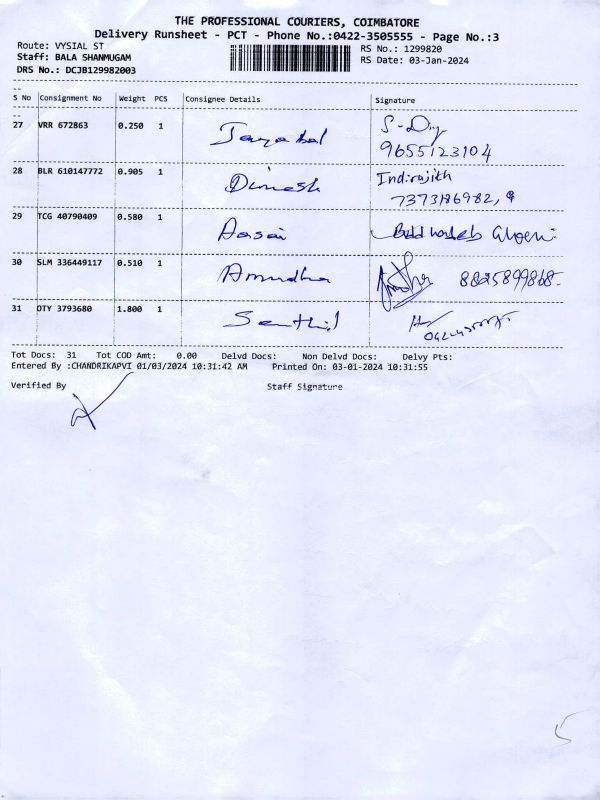 THE PROFESSIONAL COURIERS, COIMBATORE
Delivery Runsheet - PCT - Phone No.:0422-3505555 - Page No.:3
Route: VYSIAL ST
RS No.: 1299820
Staff: BALA SHANMUGAM
RS Date: 03-Jan-2024
DRS No.: DCJB129982003
S No Consignment No Weight PCS Consignee Details Signature
27 VRR 672863 0.250 1
9655123104
28 BLR 610147772 0.905 1 Dinesh Indirajith
29 TCG 40790409 0.580 1 Aasai
30 SLM 336449117 0.510 1 Amudha
31 OTY 3793680 1.800 1 Senthil
Tot Docs: 31 Tot COD Amt: 0.00 Delvd Docs: Non Delvd Docs: Delvy Pts:
Entered By :CHANDRIKAPVI 01/03/2024 10:31:42 AM Printed On: 03-01-2024 10:31:55
Verified By Staff Signature